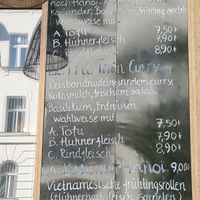 nach Hanoi
Koriander, Basilikum, Frühlingszwiebel
Wahlweise mit
A. Tofu 7,50€
B. Hühnerfleisch 7,90€
C. Rindfleisch 8,90€
Mee Turon Curry
Reisbandnudeln in rotem curry,
Kokosmilch, frischem salat,
Basilikum, Erdnüssen
Wahlweise mit
A. Tofu 7,50€
B. Hühnerfleisch 7,90€
C. Rindfleisch 8,90€
Hanoi 9,00€
Vietnamesische Frühlingsrollen
(Hühnerhack, Fisch, Garnelen)